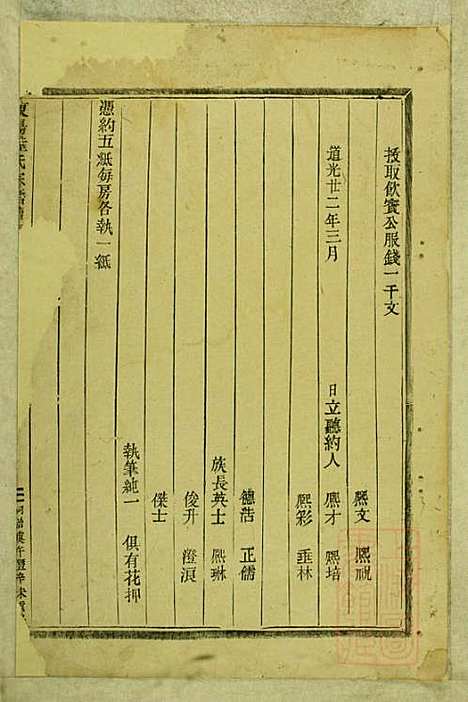 授取飲賓公服錢一千文
熙文 熙祝
道光廿二年三月 日立聽約人 熙才 熙培
熙彩 垂林
德浩 正儒
族長英士 熙琳
俊升 澄淏
傑士
執筆純一 俱有花押
憑約五紙每房各執一紙